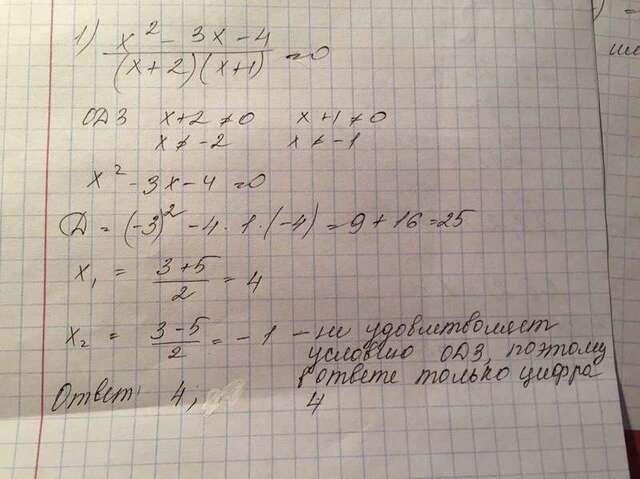 1) x² - 3x - 4 / (x+2)(x+1) = 0
ОДЗ x+2 ≠ 0 x+1 ≠ 0
x ≠ -2 x ≠ -1
x² - 3x - 4 = 0
Д = (-3)² - 4 · 1 · (-4) = 9 + 16 = 25
x₁ = 3+5 / 2 = 4
x₂ = 3-5 / 2 = -1 - не удовлетворяет
условию ОДЗ, поэтому
в ответе только цифра
4
Ответ: 4;